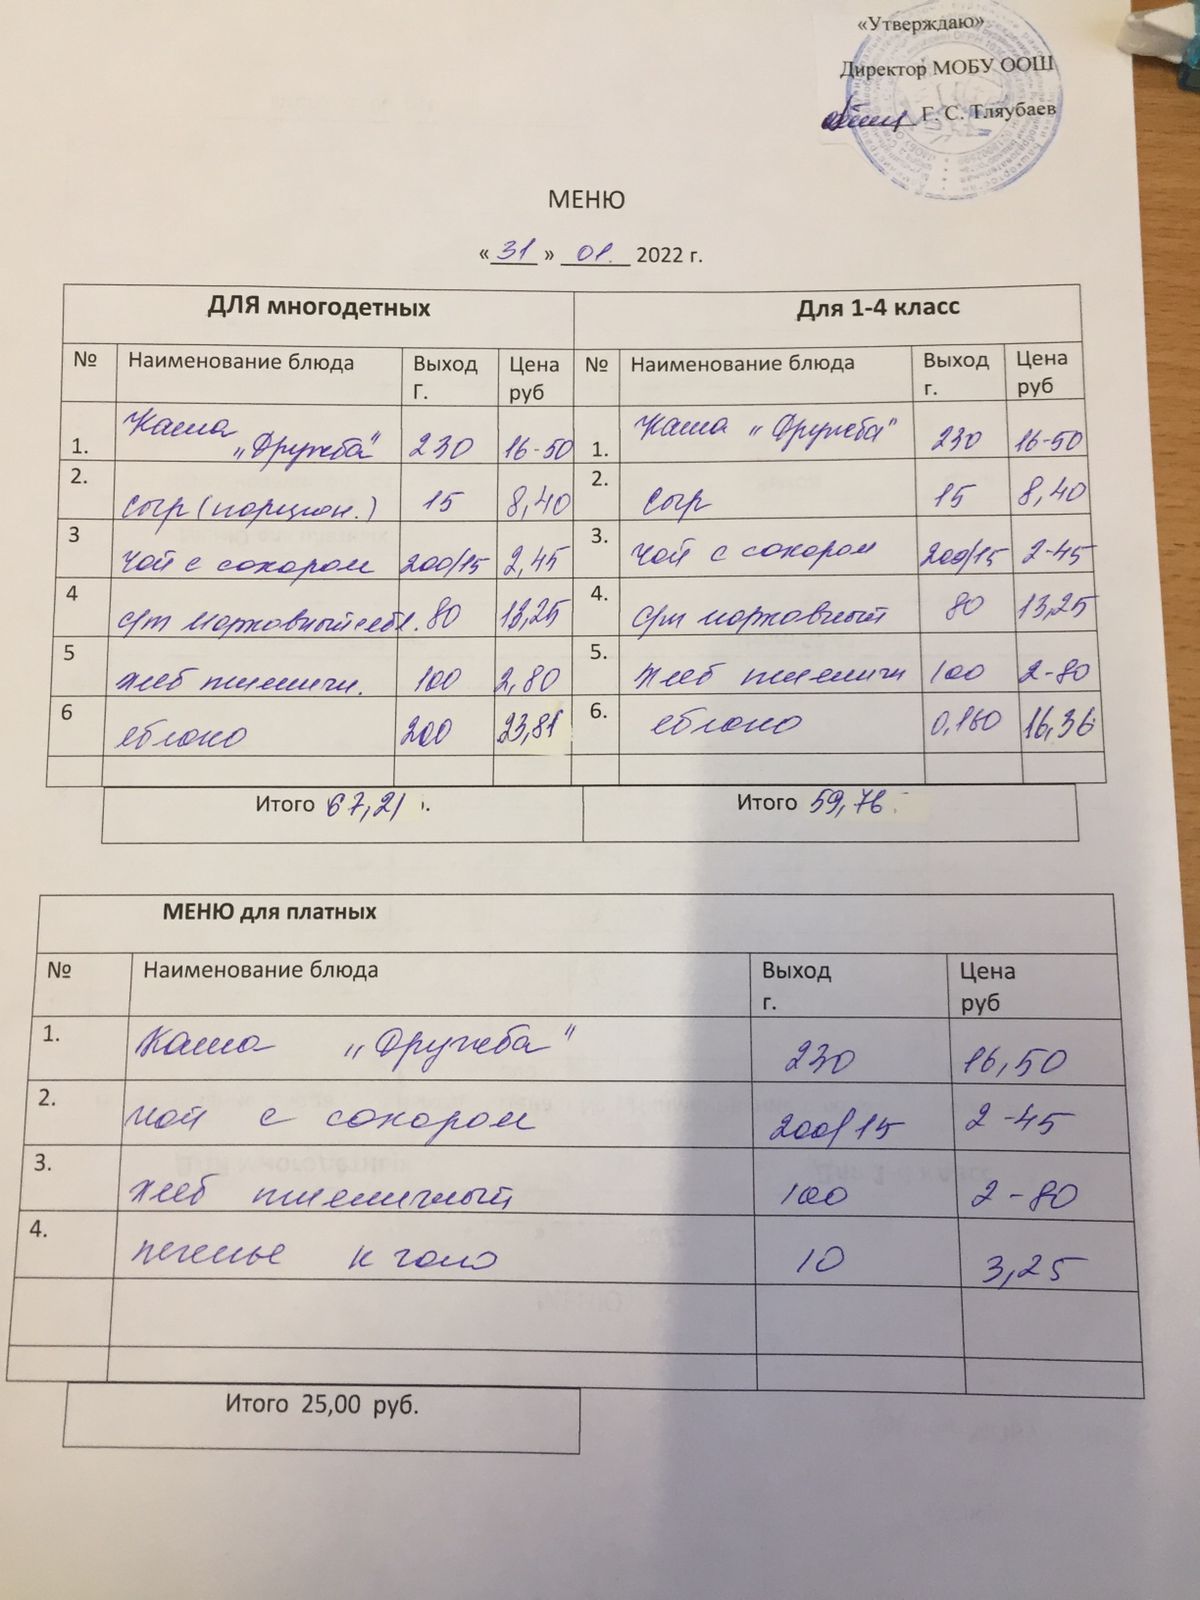 «Утверждаю»
Директор МОБУ ООШ
Г. С. Тляубаев
МЕНЮ
«31» 01. 2022 г.
ДЛЯ многодетных Для 1-4 класс
№ Наименование блюда Выход Г. Цена руб № Наименование блюда Выход г. Цена руб
1. Каша „Дружба" 230 16-50 1. Каша „Дружба" 230 16-50
2. Сыр (порцион.) 15 8,40 2. Сыр 15 8,40
3 Чай с сахаром 200/15 2,45 3. Чай с сахаром 200/15 2-45
4 морковный 80 13,25 4. морковный 80 13,25
5 Хлеб пшеничн. 100 2,80 5. Хлеб пшеничн 100 2-80
6 яблоко 200 23,81 6. яблоко 0,160 16,36
Итого 67,21 Итого 59,76
МЕНЮ для платных
№ Наименование блюда Выход г. Цена руб
1. Каша „Дружба" 230 16,50
2. Чай с сахаром 200/15 2-45
3. Хлеб пшеничный 100 2-80
4. печенье к чаю 10 3,25
Итого 25,00 руб.